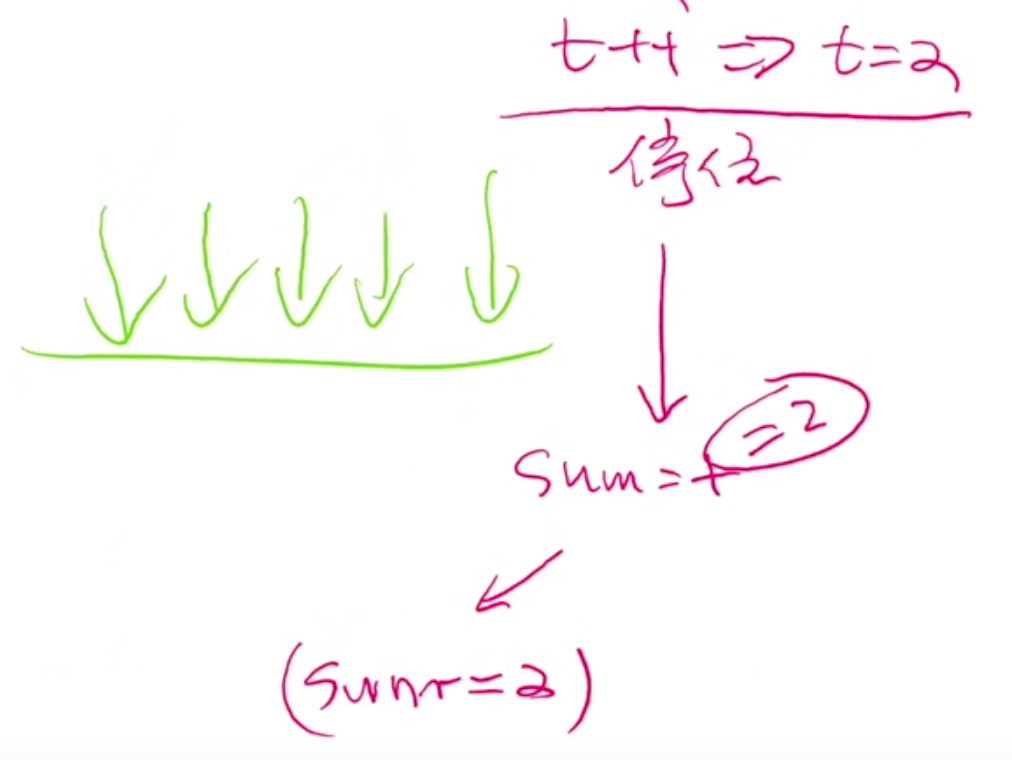 t++ => t=2
停住
sum=t =2
(sum=2)